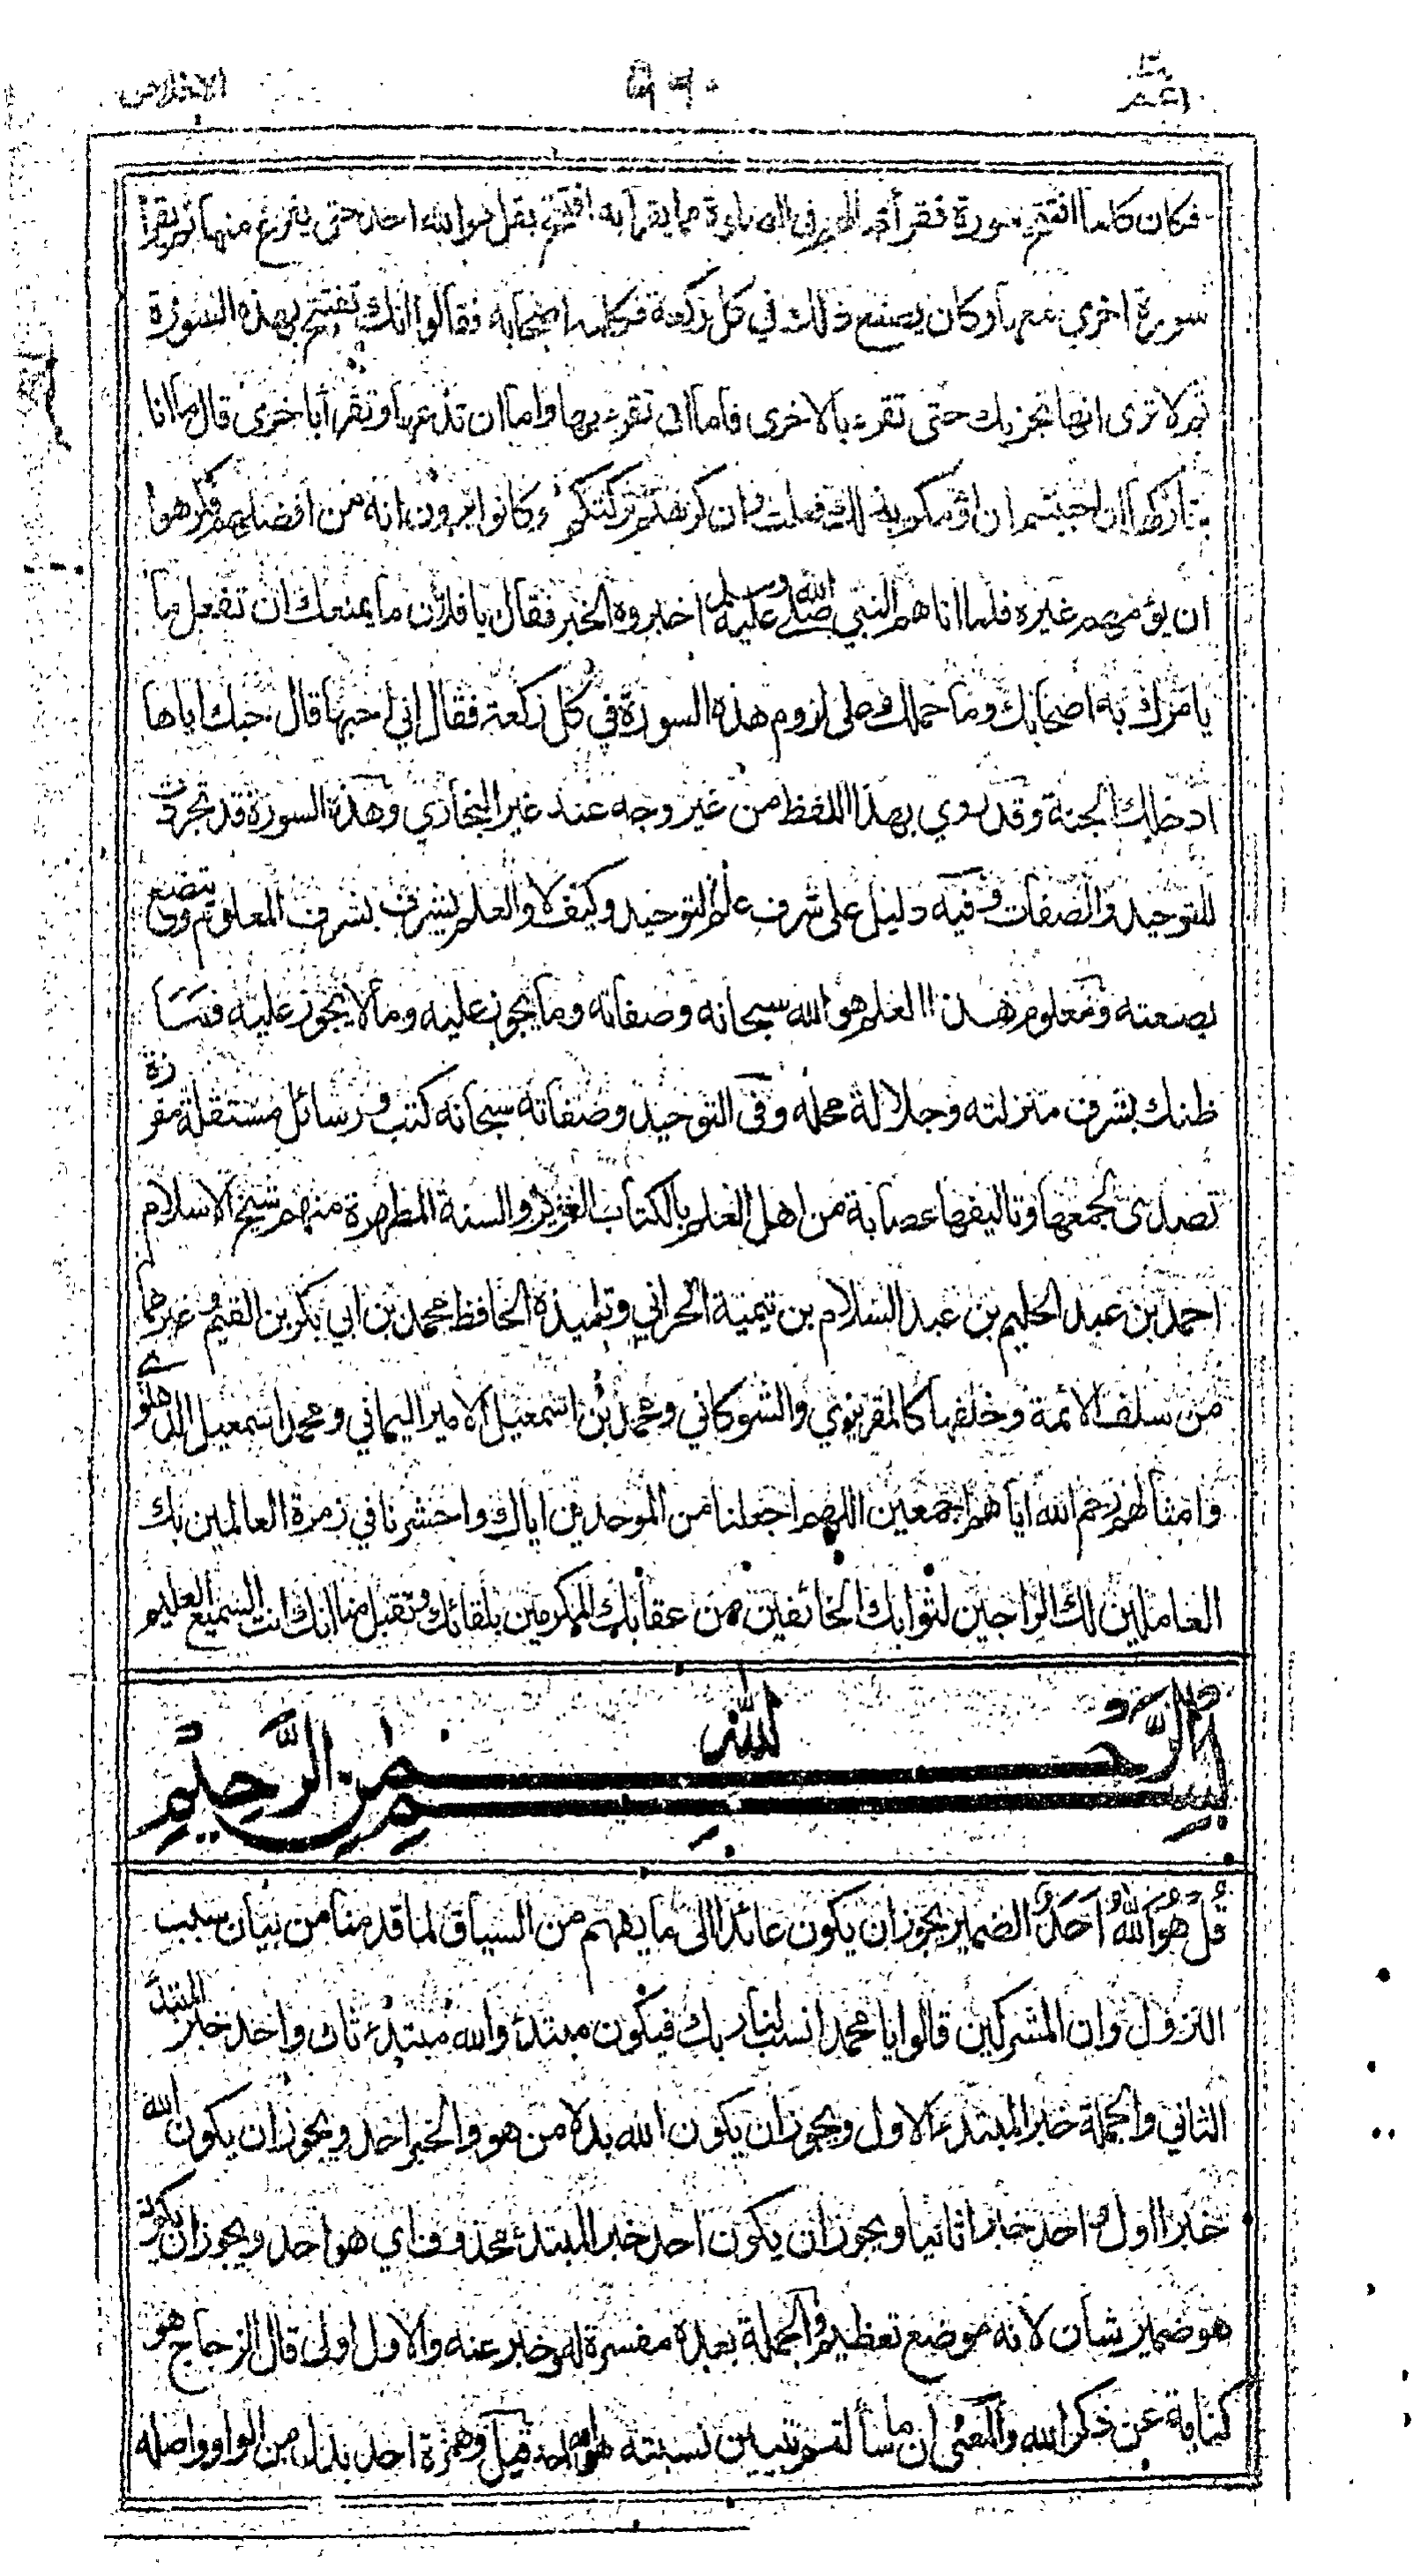 الاخلاص
فكان كلما افتتح سورة فقرأ بها لهم في الصلوة مما يقرأ به افتتح بقل هو الله احد حتى يفرغ منها ثم يقرأ
سورة اخرى معها وكان يصنع ذلك في كل ركعة فكلمه اصحابه فقالوا انك تفتتح بهذه السورة
ثم لا ترى انها تجزيك حتى تقرء بالاخرى فاما ان تقرء بها واما ان تدعها وتقرأ باخرى قال ما انا
بتاركها ان احببتم ان اؤمكم بذلك فعلت وان كرهتم تركتكم وكانوا يرون انه من افضلهم فكرهوا
ان يؤمهم غيره فلما اتاهم النبي صلى الله عليه وسلم اخبروه الخبر فقال يا فلان ما يمنعك ان تفعل ما
يأمرك به اصحابك وما حملك على لزوم هذه السورة في كل ركعة فقال اني احبها قال حبك اياها
ادخلك الجنة وقد روي بهذا اللفظ من غير وجه عند غير البخاري وهذه السورة قد تجردت
للتوحيد والصفات وفيه دليل على شرف علم التوحيد وكيف لا والعلم يشرف بشرف المعلوم ويتضع
بضعته ومعلوم هذا العلم هو الله سبحانه وصفاته وما يجوز عليه وما لا يجوز عليه فما
ظنك بشرف منزلته وجلالة محله وفى التوحيد وصفاته سبحانه كتب ورسائل مستقلة مفرزة
تصدى لجمعها وتاليفها عصابة من اهل العلم بالكتاب العزيز والسنة المطهرة منهم شيخ الاسلام
احمد بن عبد الحليم بن عبد السلام بن تيمية الحراني وتلميذه الحافظ محمد بن ابي بكر بن القيم وغيرهما
من سلف الائمة وخلفها كالمقريزي والشوكاني ومحمد بن اسمعيل الامير اليماني ومحمد اسمعيل الدهلوي
وامثالهم رحم الله اياهم اجمعين اللهم اجعلنا من الموحدين اياك واحشرنا في زمرة العالمين بك
العاملين لك الراجين لثوابك الخائفين من عقابك المكرمين بلقائك وتقبل منا انك انت السميع العليم
بسم الله الرحمن الرحيم
قُلْ هُوَ اللهُ اَحَدٌ الضمير يجوز ان يكون عائدا الى ما يفهم من السياق لما قدمنا من بيان سبب
النزول وان المشركين قالوا يا محمد انسب لنا ربك فيكون مبتدء والله مبتدء ثان واحد خبر المبتدء
الثاني والجملة خبر المبتدء الاول ويجوز ان يكون الله بدلا من هو والخبر احد ويجوز ان يكون الله
خبرا اول واحد خبرا ثانيا ويجوز ان يكون احد خبر المبتدء محذوف اي هو احد ويجوز ان يكون
هو ضمير شان لانه موضع تعظيم والجملة بعده مفسرة له وخبر عنه والاول اولى قال الزجاج هو
كناية عن ذكر الله والمعنى ان ما سألتم تبيين نسبته هو الله احد قيل وهمزة احد بدل من الواو واصله